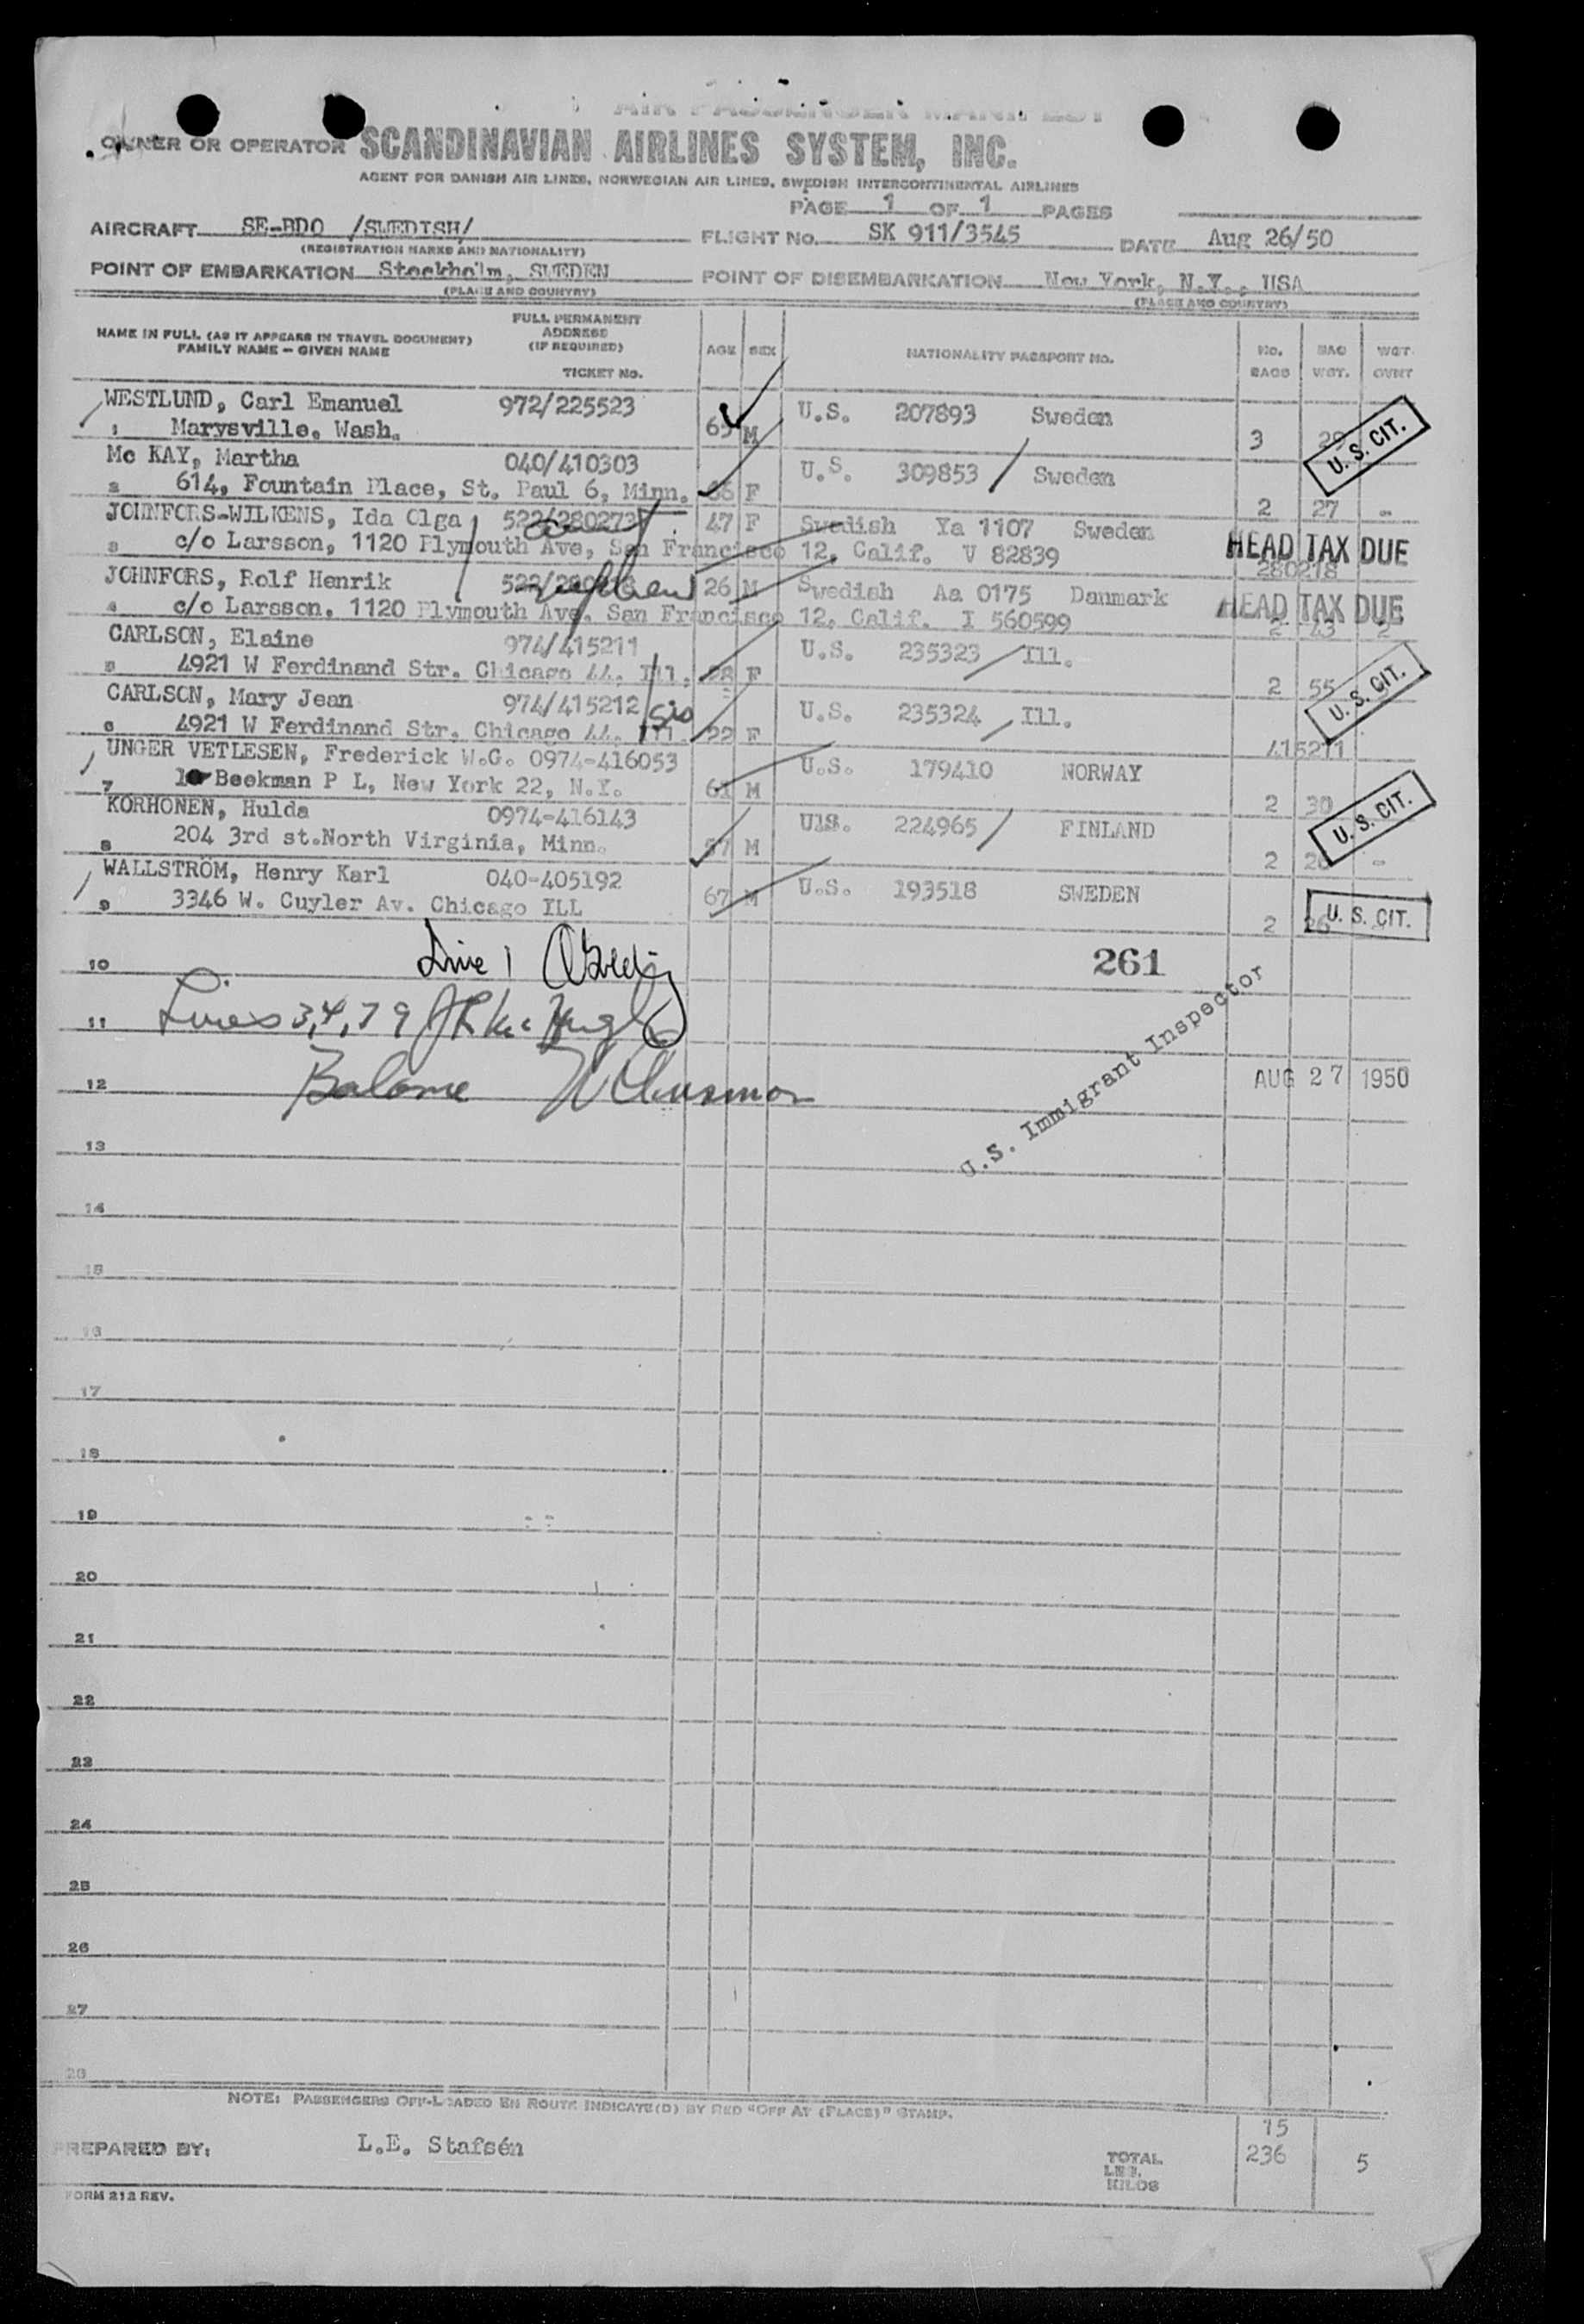 AIR PASSENGER MANIFEST
OWNER OR OPERATOR SCANDINAVIAN AIRLINES SYSTEM, INC.
AGENT FOR DANISH AIR LINES, NORWEGIAN AIR LINES, SWEDISH INTERCONTINENTAL AIRLINES
PAGE 1 OF 1 PAGES
AIRCRAFT SE-BDO /SWEDISH/ FLIGHT No. SK 911/3545 DATE Aug 26/50
(REGISTRATION MARKS AND NATIONALITY)
POINT OF EMBARKATION Stockholm, SWEDEN POINT OF DISEMBARKATION New York, N.Y., USA
(PLACE AND COUNTRY) (PLACE AND COUNTRY)
NAME IN FULL (AS IT APPEARS IN TRAVEL DOCUMENT) FAMILY NAME - GIVEN NAME FULL PERMANENT ADDRESS (IF REQUIRED) TICKET No. AGE SEX NATIONALITY PASSPORT No. No. BAGS BAG WGT. WGT. OVWT
WESTLUND, Carl Emanuel 972/225523 U.S. 207893 Sweden
1 Marysville. Wash. 65 M 3 U. S. CIT.
Mc KAY, Martha 040/410303 U.S. 309853 / Sweden
2 614, Fountain Place, St. Paul 6, Minn. F 2 27 -
JOHNFORS-WILKENS, Ida Olga 522/280273 47 F Swedish Ya 1107 Sweden
3 c/o Larsson, 1120 Plymouth Ave, San Francisco 12, Calif. V 82839 HEAD TAX DUE
280218
JOHNFORS, Rolf Henrik 26 M Swedish Aa 0175 Danmark
4 c/o Larsson, 1120 Plymouth Ave. San Francisco 12, Calif. I 560599 HEAD TAX DUE
2 43 2
CARLSON, Elaine 974/415211 U.S. 235323 / Ill.
5 4921 W Ferdinand Str. Chicago 44, Ill. 28 F 2 55 U. S. CIT.
CARLSON, Mary Jean 974/415212 U.S. 235324 / Ill.
6 4921 W Ferdinand Str. Chicago 44, Ill. 22 F 415211
UNGER VETLESEN, Frederick W.G. 0974-416053 U.S. 179410 NORWAY
7 Beekman P L, New York 22, N.Y. 61 M 2 30 U. S. CIT.
KORHONEN, Hulda 0974-416143 U1S. 224965 / FINLAND
8 204 3rd st.North Virginia, Minn. M 2 26 -
WALLSTRÖM, Henry Karl 040-405192 U.S. 193518 SWEDEN
9 3346 W. Cuyler Av. Chicago ILL 67 M 2 26 U. S. CIT.
10 Line 1 261
11 Lines 3,4,7 9
12 Balance
U.S. Immigrant Inspector
AUG 27 1950
13
14
15
16
17
18
19
20
21
22
23
24
25
26
27
28
NOTE: PASSENGERS OFF-LOADED EN ROUTE INDICATE(D) BY RED "OFF AT (PLACE)" STAMP.
PREPARED BY: L.E. Stafsén TOTAL LBS. KILOS 15 236 5
FORM 212 REV.